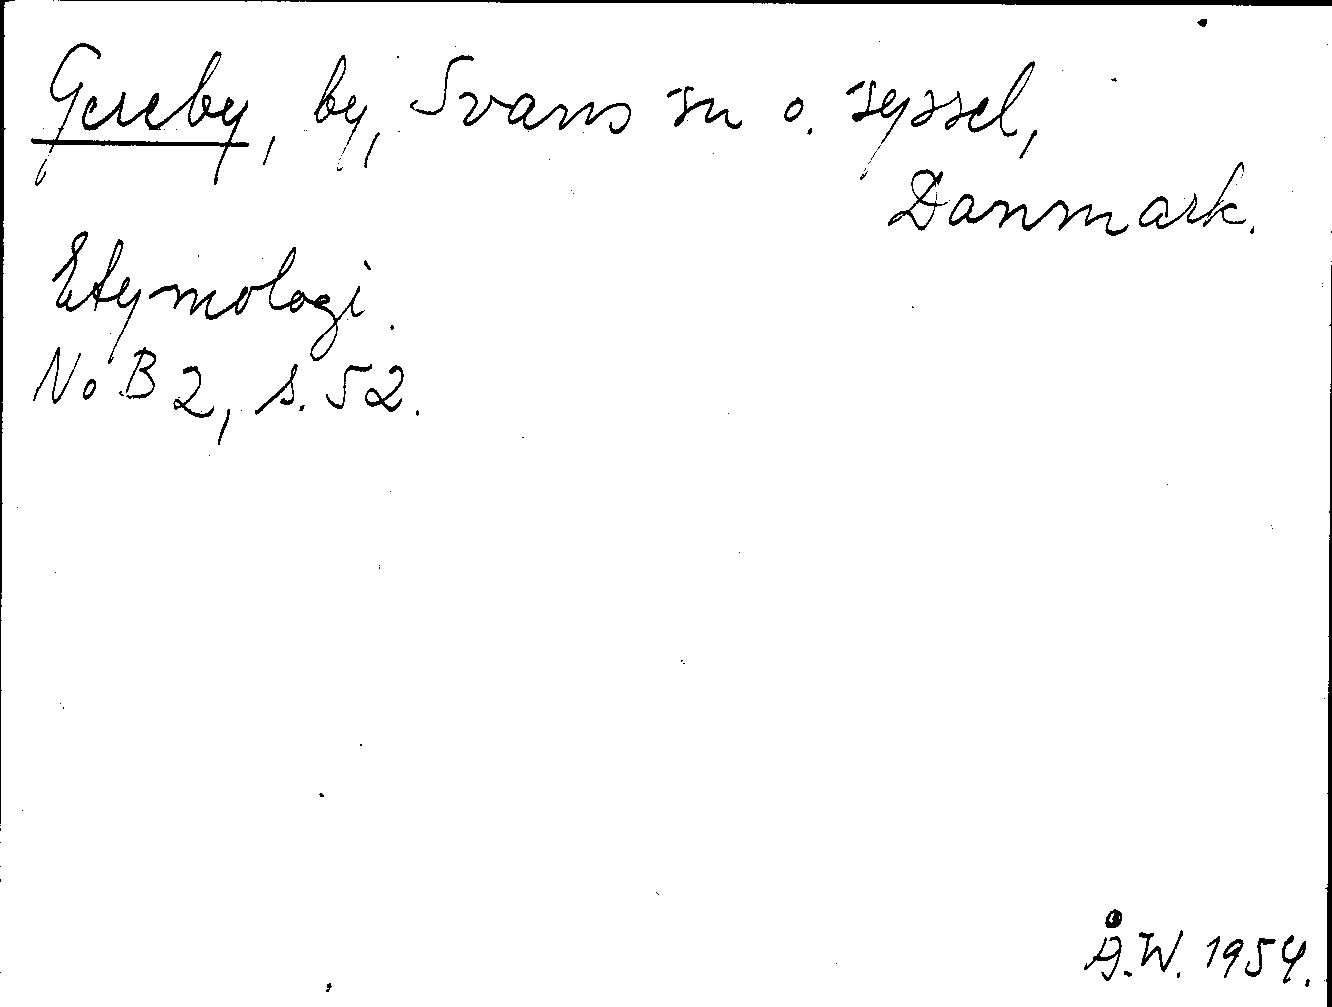 Gereby, by, Svans sn o. syssel,
Danmark.
Etymologi.
NoB 2, s. 52.
Å.W. 1954.